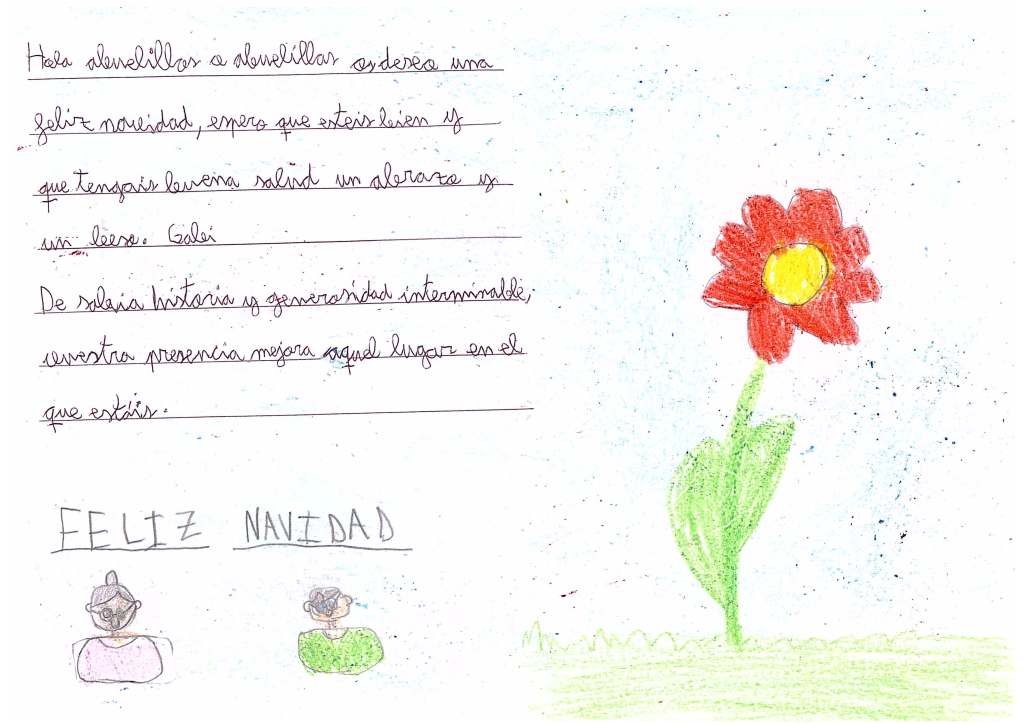 Hola abuelillos o abuelillas os deseo una
feliz navidad, espero que esteis bien y
que tengais buena salud un abrazo y
un beso. Gabi
De sabia historia y generosidad interminable,
vuestra presencia mejora aquel lugar en el
que estáis.
FELIZ NAVIDAD